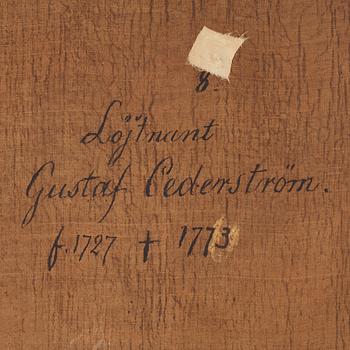 8.
Löjtnant
Gustaf Cederström.
f. 1727 † 1773